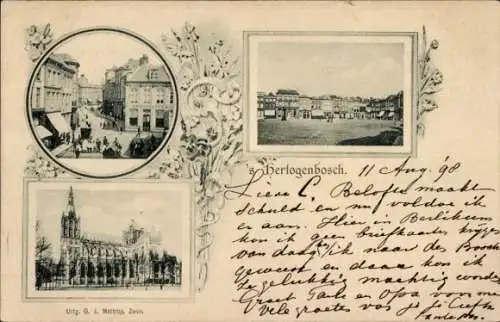 's Hertogenbosch. 11 Aug. 98
Lieve C. Belofte maakt
schuld en nu voldoe ik
er aan. Hier in Berlikum
kon ik geen briefkaarten krijgen
van daag ik naar de Bosch
geweest en daar kon ik
ze gelukkig machtig worden
Groet Tante en Opa van me
vele groeten van je Liefh
Uitg. G. J. Mathijs, Zwin.